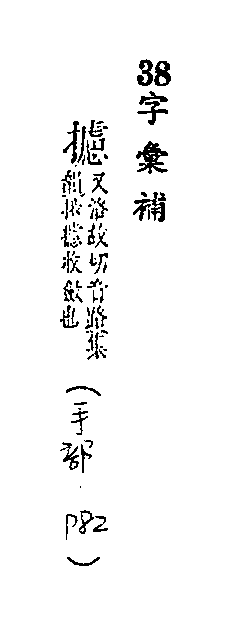 38字彙補
攄又落故切音路集
韻攎攄收斂也
（手部．P82）